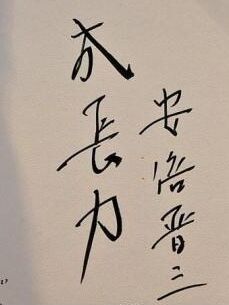 成長力
安倍晋三